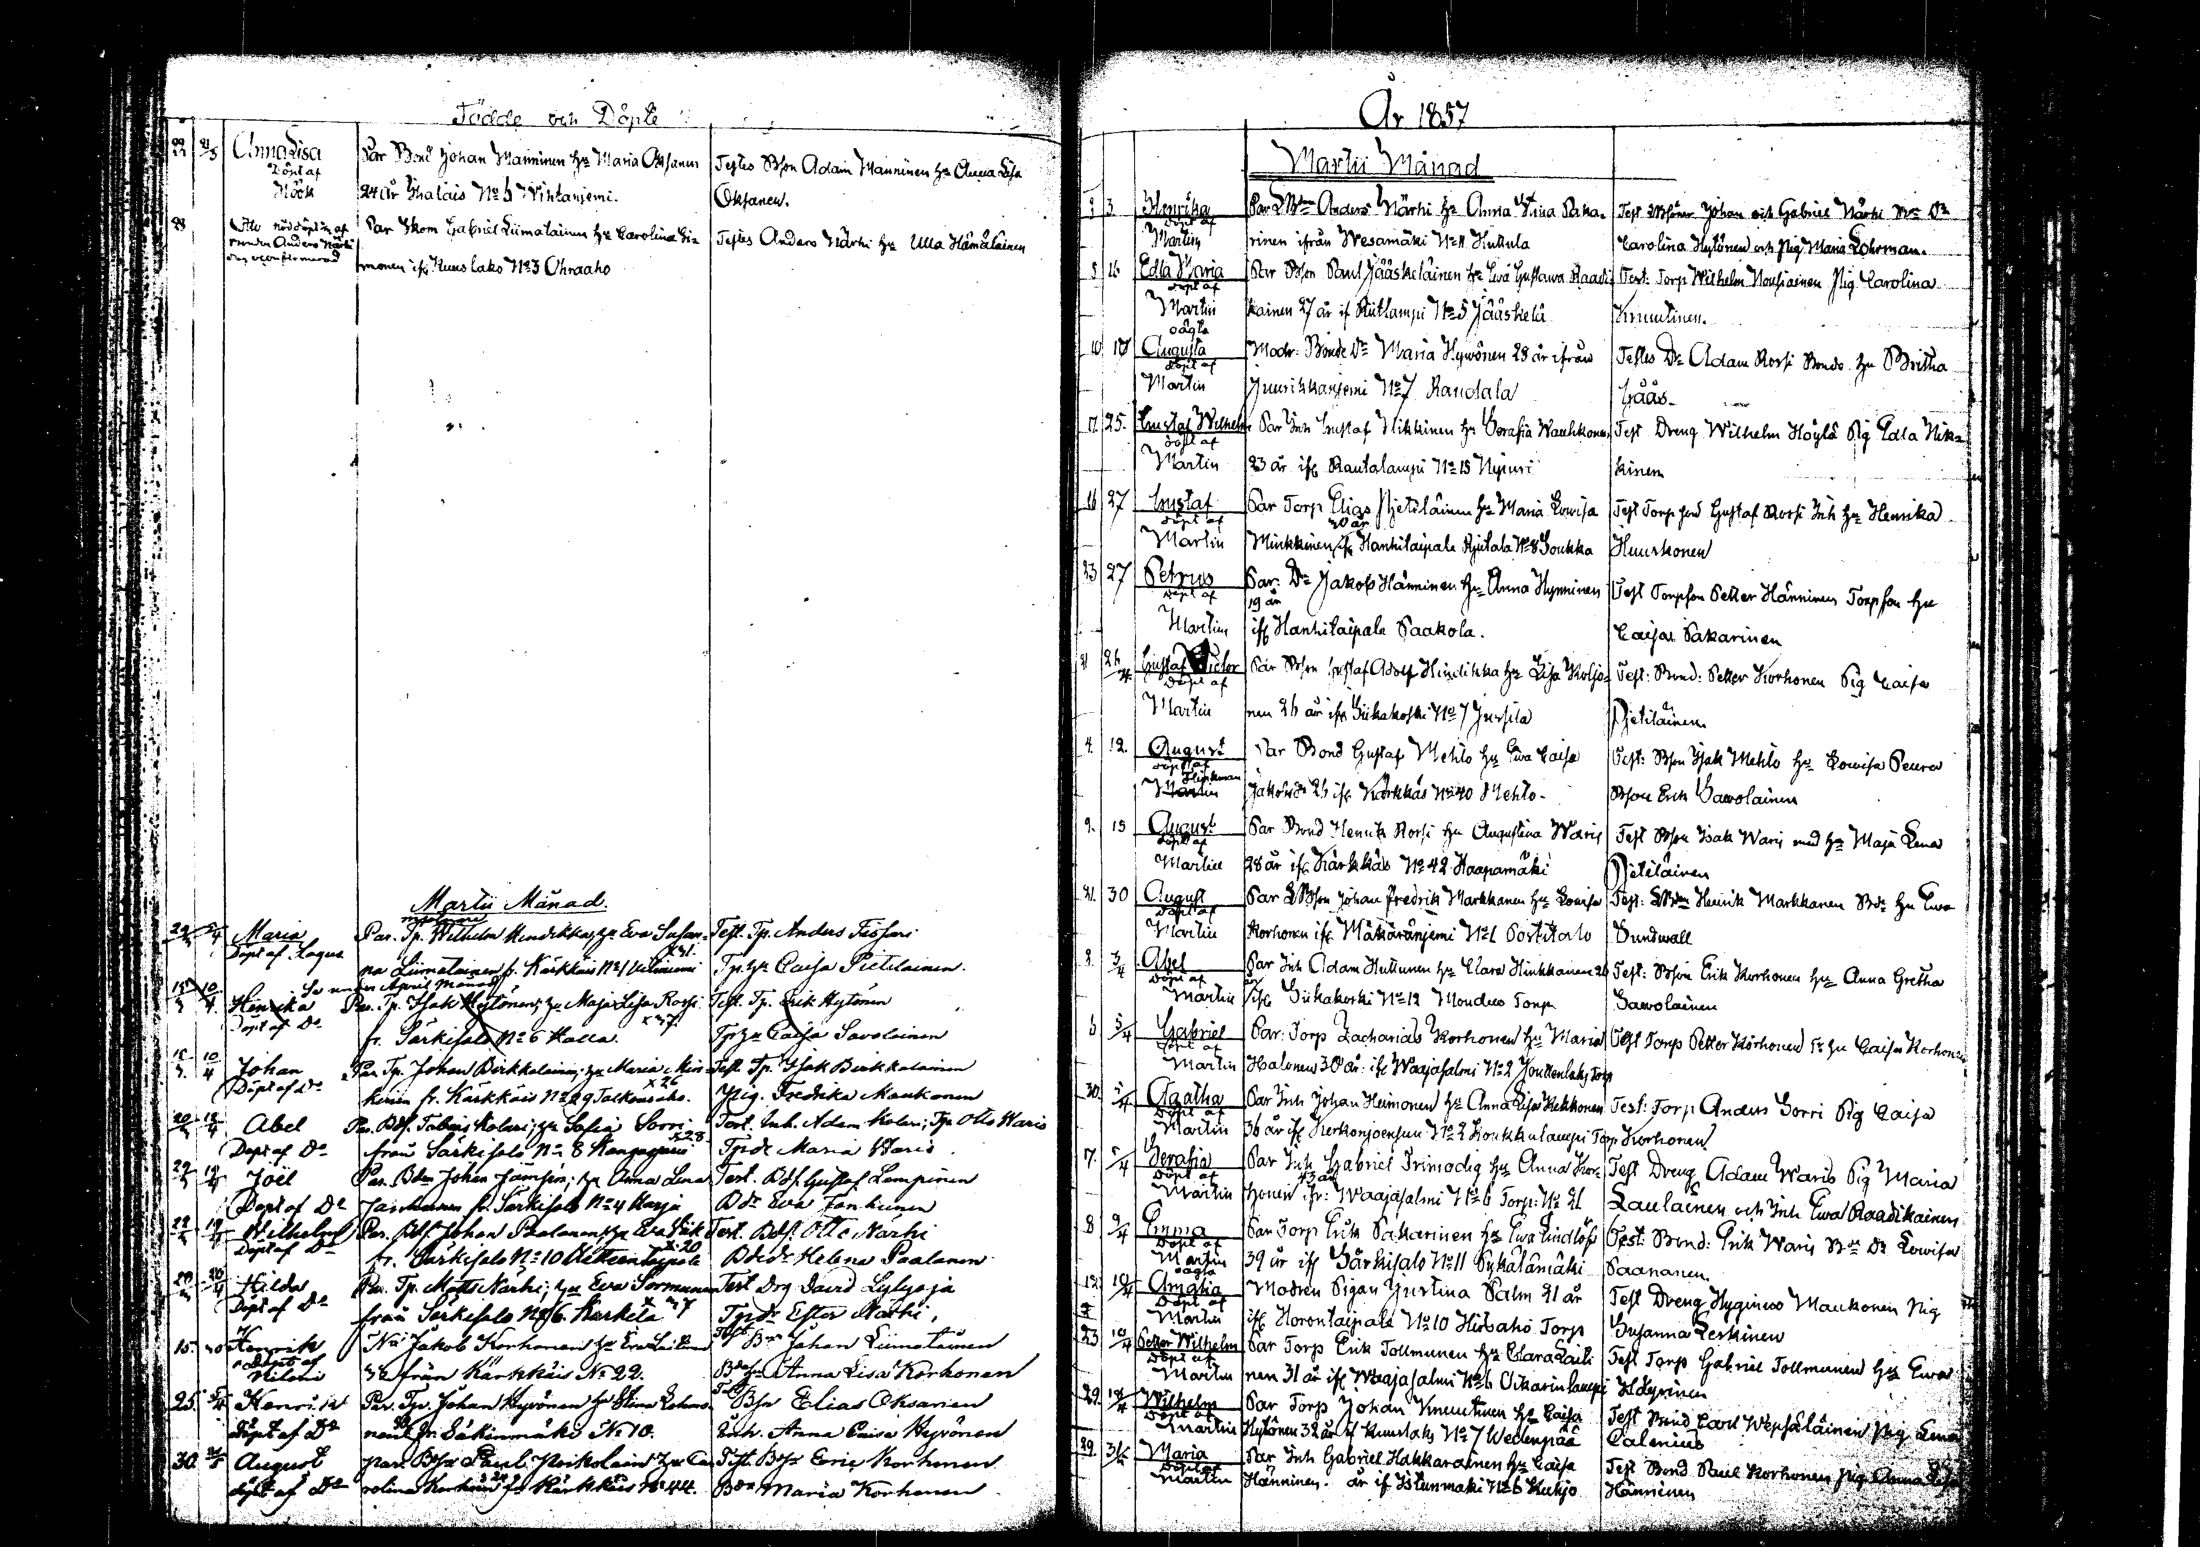 Födde och Döpte
22 21/3 Anna Lisa Par Bond Johan Manninen Hu Maria Oksanen Testes Bson Adam Manninen Hu Anna Lisa
Döpt af
Höök 24 år Halais No 5 Wihtanjemi. Oksanen.
28 nöddöpt af Par Gabriel Liimatainen Hu Carolina Si- Testes Anders Närhi Hu Ulla Hämäläinen
Anders Närhi
monen if Kuuslaks No 3 Ohraaho
Martii Månad.
Maria Par. Tp. Wilhelm Hindrikka, Hu Eva Susan- Test. Tp. Anders Tissari
Döpt af Lagus
na Liimatainen fr. Kärkkäis No 1 Tp. Hu Caisa Pietilainen.
Se under April Månad
Henrika Par. Tp. Isak Hytönen; Hu Maja Lisa Rossi Test. Tp. Erik Hytönen
Döpt af Do
fr. Särkisalo No 6 Halla. Tp Hu Caisa Savolainen
Johan Par Tp. Johan Pirkkalainen; Hu Maria Min- Test Tp. Isak Pirkkalainen
Döpt af Do
kinen fr. Kärkkäis No 29 Pig. Fredrika Maukonen
Abel Par. Bdf. Tobias Kolari; Hu Sofia Sorri Test. Inh. Adam Kolari; Tp Otto Waris
Döpt af Do från Särkisalo No 8 Kangasjärvi Tpdr Maria Waris.
Joël Par. Bdn Johan Jämsén; Hu Anna Lena Test. Bdf. Gustaf Lampinen
Döpt af Do Janhunen fr. Särkisalo No 4 Harja Bdr Eva Janhunen
Wilhelm Par. Bdf. Johan Paalanen Hu Eva Test. Bdf. Otto Närhi
Döpt af Do
fr. Särkisalo No 10 Helena Paalanen
Hilda Par. Tp. Matts Närhi; Hu Eva Sormunen Test Drg David Lylysoja
Döpt af Do
från Särkisalo No 6. Karkela Tpdr Ester Närhi.
15. Henrik Jakob Korhonen Hu Eva Test Johan Liimatainen
Döpt af från Kärkkäis No 22. Anna Lisa Korhonen
25. Henrik Par. Tp. Johan Hyvönen Hu Stina Test Bsn Elias Oksanen
Döpt af Do No 10. Inh. Anna Caisa Hyvönen
30. August Par. Bsn Paul Hu Ca- Test. Bsn Eric Korhonen
döpt af Do rolina Korhonen fr Kärkkäis No 44. Maria Korhonen
År 1857
Martii Månad
3 Henrika Par Anders Närhi Hu Anna Stina Paka- Test Johan och Gabriel Närhi
Döpt af
Martin rinen ifrån Wesamäki No 11 Huttula Carolina Hytönen och Pig Maria Lohrman.
8 16 Edla Maria Par Bson Paul Jääskeläinen Hu Ewa Gustawa Raadi- Test: Torp Wilhelm Nousiainen Pig Carolina
Döpt af
Martin kainen 27 år if Rutlampi No 5 Jääskelä Knuutinen.
oägta
10 18 Augusta Modr: Bonde Dr Maria Hyvönen 28 år ifrån Testes Dr Adam Rossi Bonde Hu Britha
Döpt af
Martin Juurikkaniemi No 7 Randala Gåås.
17 25. Gustaf Wilhelm Par Inh Gustaf Nikkinen Hu Serafia Wauhkonen Test Dreng Wilhelm Höylä Pig Edla Nik-
Döpt af
Martin 23 år if Rautalampi No 15 kinen
16 27 Gustaf Par Torp Elias Pietiläinen Hu Maria Lowisa Test Torp son Gustaf Rossi Inh Hu Henrika
Döpt af 40 år
Martin Minkkinen if Hankitaipale No 8 Soukka Huuskonen
23 27 Petrus Par: Dr Jakob Hänninen Hu Anna Hynninen Test Torpson Petter Hänninen Torpson Hu
Döpt af 19 år
Martin if Hankitaipale Paakola. Caisa Pakarinen
21 26/4 Gustaf Victor Par Bson Gustaf Adolf Hindrikka Hu Lisa Test: Bond: Petter Korhonen Pig Caisa
Döpt af
Martin nen 26 år if Siikakoski No 7 Jussila Pietiläinen
4. 12. August Par Bond Gustaf Mehto Hu Ewa Caisa Test: Bson Isak Mehto Hu Lowisa Peura
Döpt af
Flinkman
Martin 26 if Kärkkäs No 40 Mehto. Bson Erik Sawolainen
9. 15 August Par Bond Henrik Rossi Hu Augustina Waris Test Bson Isak Waris med Hu Maja Lena
Döpt af
Martin 28 år if Kärkkäs No 42 Haapamäki Pietiläinen
21. 30 August Par Johan Fredrik Markkanen Hu Lowisa Test: Henrik Markkanen Hu Ewa
Döpt af
Martin Korhonen if Mäkäräniemi No 1 Sundwall
8. 3/4 Abel Par Inh Adam Huttunen Hu Clara Hinkkanen 26 Test: Bson Erik Korhonen Hu Anna Gretha
Döpt af år
Martin if Siikakoski No 12 Torp Sawolainen
5/4 Gabriel Par: Torp Zacharias Korhonen Hu Maria Test Torp Petter Korhonen Hu Caisa Korhonen
Döpt af
Martin Halonen 30 år: if Waajasalmi No 2 Torp
30. 5/4 Agatha Par Inh Johan Heimonen Hu Anna Lisa Kekkonen Test: Torp Anders Sorri Pig Caisa
Döpt af
Martin 36 år if Kerkonjoensuu No 2 Koukkulampi Torp Korhonen
7. 5/4 Serafia Par Inh Gabriel Trimodig Hu Anna Kor- Test Dreng Adam Waris Pig Maria
Döpt af 43 år
Martin honen ifr: Waajasalmi No 6 Torp: No 21 Laulainen och Inh Ewa Raadikainen
8 9/4 Emma Par Torp Erik Pakarinen Hu Ewa Lindlöf Test: Bond: Erik Waris Lowisa
Döpt af
Martin 39 år if Särkisalo No 11 Pykälämäki Paananen.
oägta
12 10/4 Amalia Modren Pigan Justina Palm 21 år Test Dreng Hyginus Maukonen Pig
Döpt af
Martin if Horontaipale No 10 Torp Susanna Leskinen
23 10/4 Petter Wilhelm Par Torp Erik Tollmunen Hu Clara Laiti- Test Torp Gabriel Tollmunen Hu Ewa
Döpt af
Martin nen 31 år if Waajasalmi No 6
29. 18/4 Wilhelm Par Torp Johan Knuutinen Hu Caisa Test Bond Carl Wepsäläinen Pig Lena
Döpt af
Martin Hytönen 32 år if Kuuslaks No 7 Wedenpää Calenius
29. 31/5 Maria Par Inh Gabriel Hakkarainen Hu Caisa Test Bond Paul Korhonen Pig Anna Lisa
Döpt af
Martin Hänninen. år if Istunmäki No 6 Kuhjo Hänninen